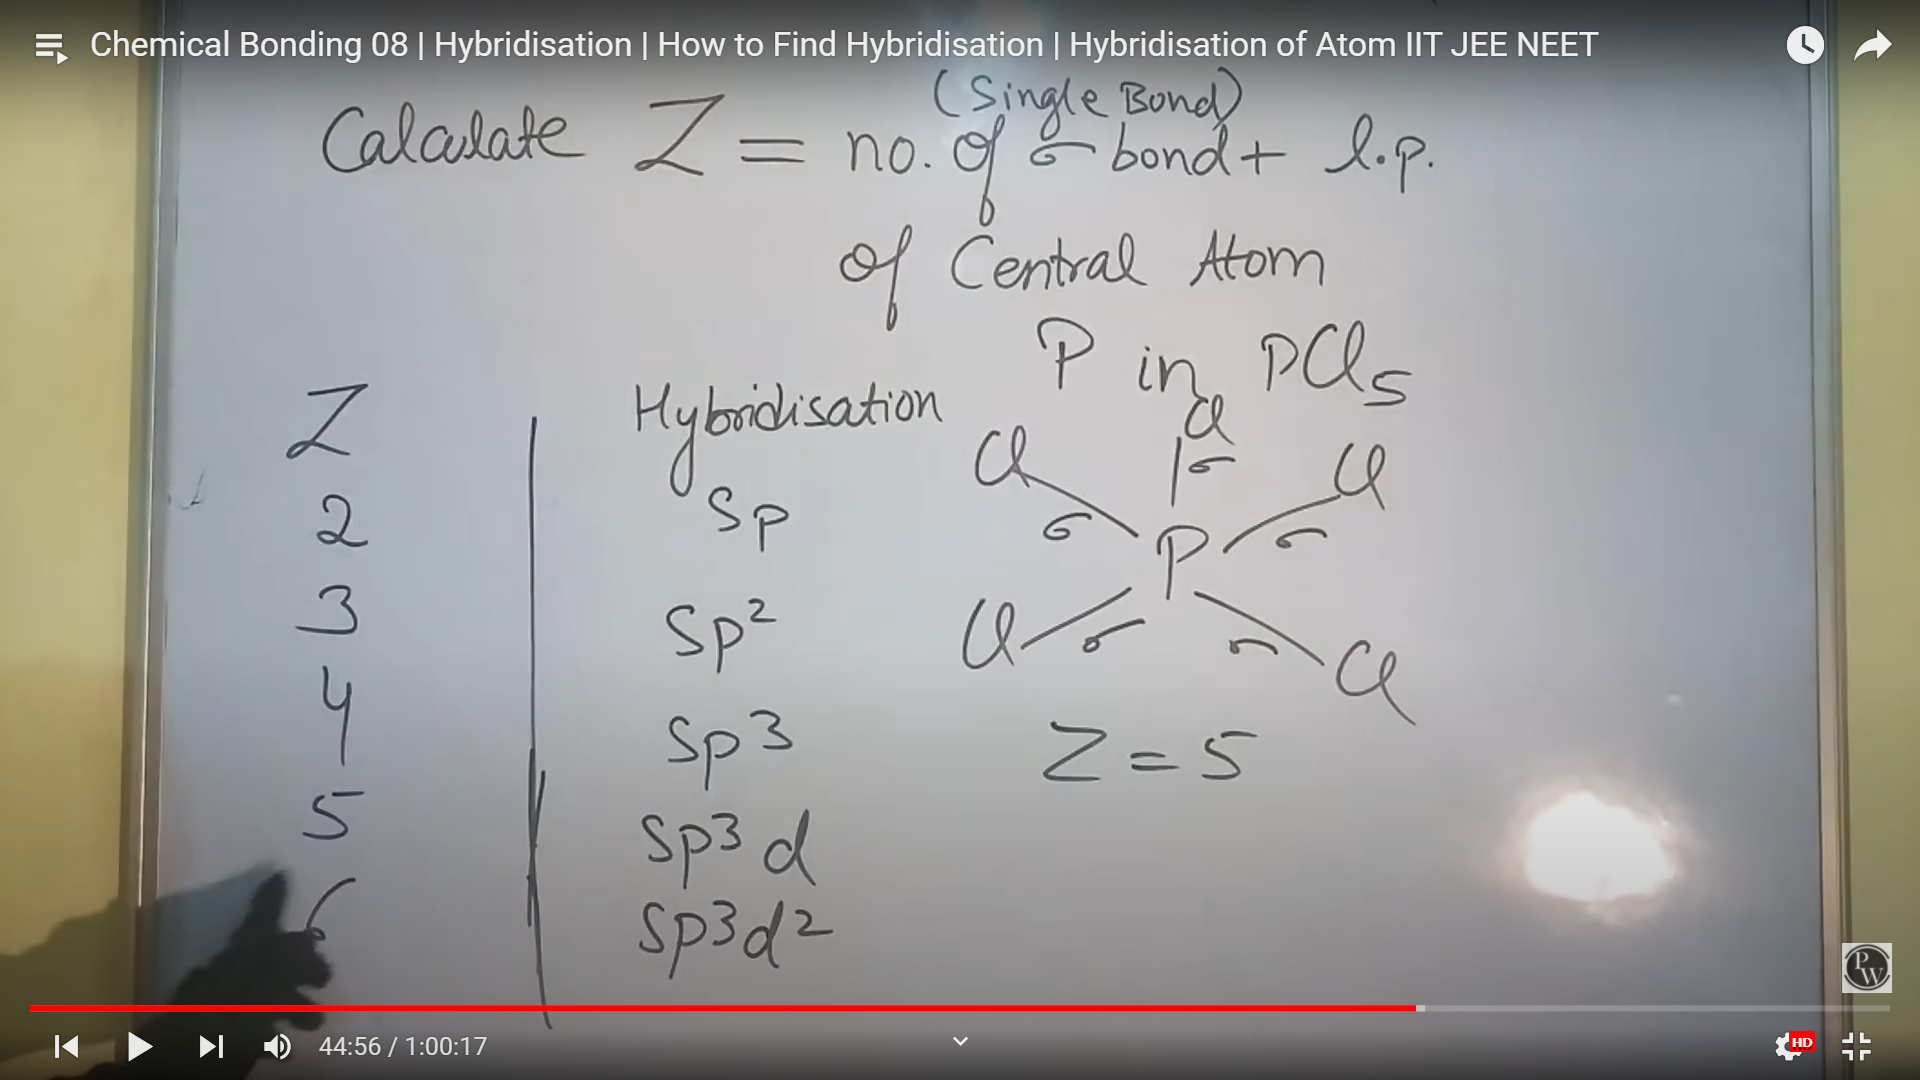 Chemical Bonding 08 | Hybridisation | How to Find Hybridisation | Hybridisation of Atom IIT JEE NEET
(Single Bond)
Calculate Z = no. of σ bond + l.p.
of Central Atom
P in PCl5
Z
Hybridisation
2 Sp
3 Sp²
4 Sp³
5 Sp³d
6 Sp³d²
Cl
Cl
Cl
σ
σ
σ
P
Cl
σ
σ
Cl
Z = 5
PW
44:56 / 1:00:17
HD